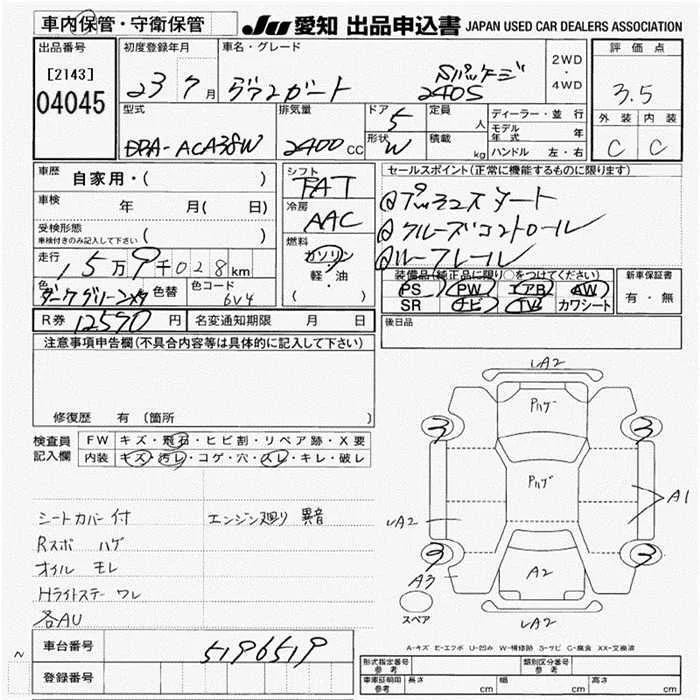 車内保管・守衛保管
JU 愛知 出品申込書 JAPAN USED CAR DEALERS ASSOCIATION
出品番号
[2143]
04045
初度登録年月
23 7 月
車名・グレード
ヴァンガード Sパッケージ 240S
2WD・4WD
評価点
3.5
外装 内装
C C
型式
DBA-ACA38W
排気量
2400 CC
ドア
5
形状
W
定員 人
積載 kg
ディーラー・並行
モデル年式 年
ハンドル 左・右
車歴
自家用・( )
車検 年 月( 日)
受検形態
車検付きのみ記入して下さい ( )
走行
15万9千028km
色
ダークグリーンメタ
色替
色コード
6V4
シフト
FAT
冷房
AAC
燃料
ガソリン
軽・油
( )
セールスポイント(正常に機能するものに限ります)
プッシュスタート
クルーズコントロール
ルーフレール
装備品(純正品に限り○をつけてください)
PS PW エアB AW
SR ナビ TV カワシート
新車保証書
有・無
R券 12590 円
名変通知期限 月 日
後日品
注意事項申告欄(不具合内容等は具体的に記入して下さい)
修復歴 有(箇所 )
検査員記入欄
FW キズ・飛石・ヒビ割・リペア跡・X要
内装 キズ・汚レ・コゲ・穴・スレ・キレ・破レ
シートカバー付
Rスポ ハゲ
オイル モレ
Hライトステー ワレ
各AU
エンジン廻り 異音
A2
Pハゲ
3 3
Pハゲ
A2
A1
3 3
A3
A2
スペア
A2
A-キズ E-エクボ U-凹み W-補修跡 S-サビ C-腐食 XX-交換済
車台番号
5196519
登録番号
形式指定番号 参考
類別区分番号 参考
車庫証明用 参考
長さ cm
幅 cm
高さ cm